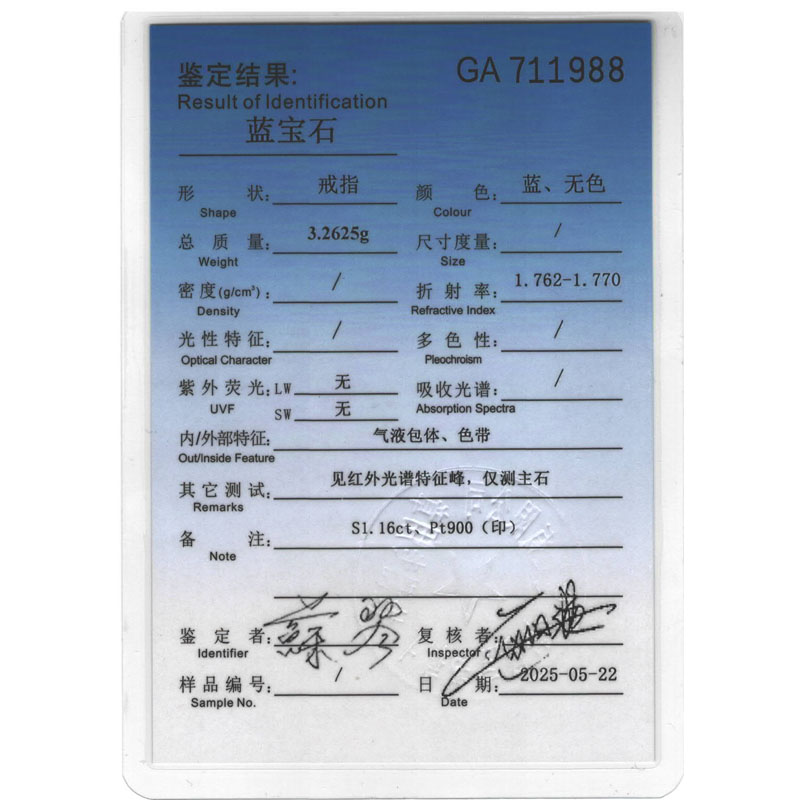 鉴定结果: GA 711988
Result of Identification
蓝宝石
形 状: 戒指 颜 色: 蓝、无色
Shape Colour
总 质 量: 3.2625g 尺寸度量: /
Weight Size
密度(g/cm³): / 折 射 率: 1.762-1.770
Density Refractive Index
光性特征: / 多 色 性: /
Optical Character Pleochroism
紫外荧光: LW 无 吸收光谱: /
UVF SW 无 Absorption Spectra
内/外部特征: 气液包体、色带
Out/Inside Feature
其它测试: 见红外光谱特征峰，仅测主石
Remarks
备 注: S1.16ct、Pt900（印）
Note
鉴 定 者: 复 核 者:
Identifier Inspector
样品编号: / 日 期: 2025-05-22
Sample No. Date